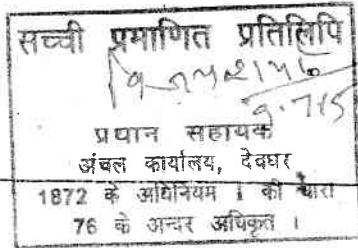 सच्ची प्रमाणित प्रतिलिपि
प्रधान सहायक
अंचल कार्यालय, देवघर
1872 के अधिनियम I की धारा
76 के अन्दर अधिकृत ।